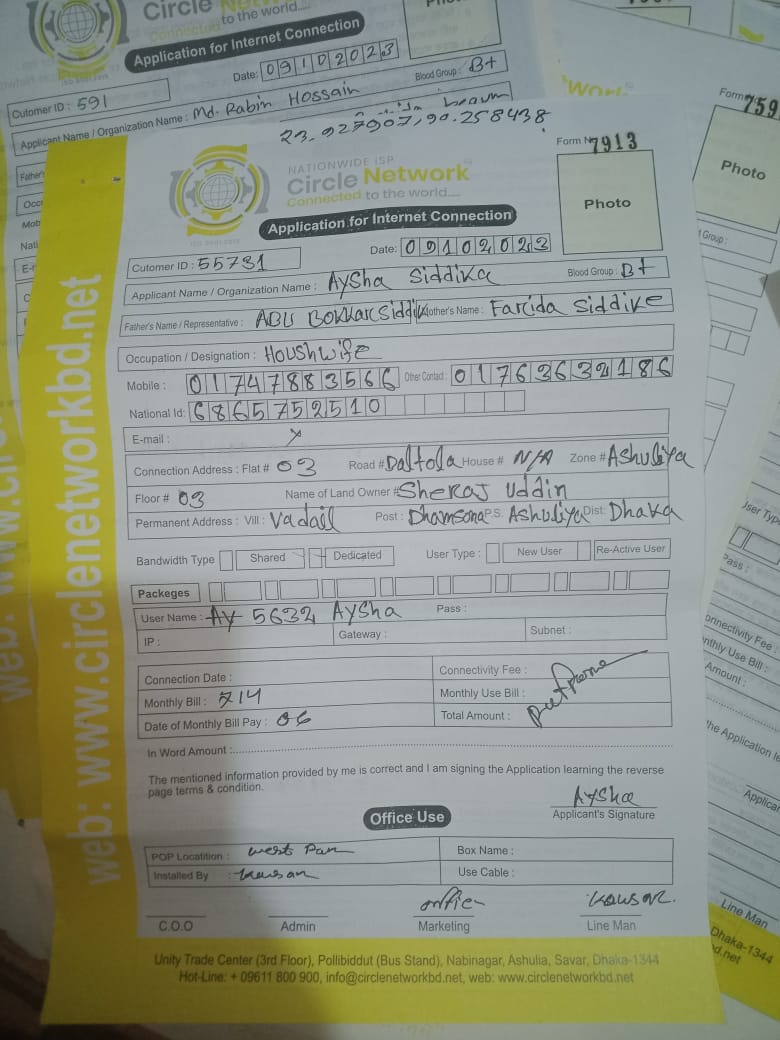 Circle Network
Connected to the world....
Application for Internet Connection
Date: 09102023
Cutomer ID : 591
Blood Group : B+
Applicant Name / Organization Name : Md. Rabin Hossain
23.927907,90.258438
Form N 7913
NATIONWIDE ISP
Circle Network
Connected to the world....
Photo
Application for Internet Connection
Date: 09102023
Cutomer ID : 55731
Applicant Name / Organization Name : Aysha Siddika
Blood Group : B+
Father's Name / Representative : ABU Bokkar Siddik Mother's Name : Farcida Siddike
Occupation / Designation : Houshwife
Mobile : 01747883566 Other Contact : 01763632186
National Id: 6865752510
E-mail : x
Connection Address : Flat # 03 Road # Daltola House # N/A Zone # Ashuliya
Floor # 03 Name of Land Owner # Sheraj Uddin
Permanent Address : Vill : Vadail Post : Dhamsona P.S. Ashuliya Dist: Dhaka
Bandwidth Type Shared Dedicated User Type : New User Re-Active User
Packeges
User Name : AY 5632 Aysha Pass :
IP : Gateway : Subnet :
Connection Date : Connectivity Fee :
Monthly Bill : 714 Monthly Use Bill :
Date of Monthly Bill Pay : 06 Total Amount :
In Word Amount :
The mentioned information provided by me is correct and I am signing the Application learning the reverse
page terms & condition.
Aysha
Applicant's Signature
Office Use
POP Locatition : west Para Box Name :
Installed By : Use Cable :
office Kausar.
C.O.O Admin Marketing Line Man
Unity Trade Center (3rd Floor), Pollibiddut (Bus Stand), Nabinagar, Ashulia, Savar, Dhaka-1344
Hot-Line: + 09611 800 900, info@circlenetworkbd.net, web: www.circlenetworkbd.net
web: www.circlenetworkbd.net
Form 759
Photo
Group :
User Type
Pass :
Connectivity Fee :
Monthly Use Bill :
Amount :
the Application le
Applicant
Line Man
Dhaka-1344
d.net